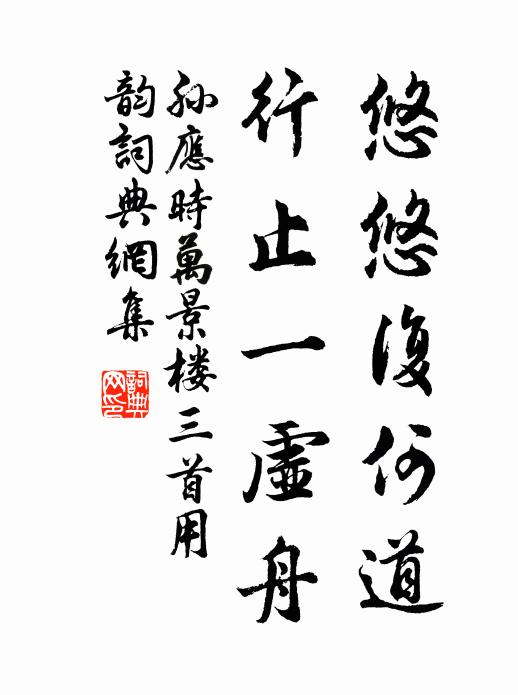 悠悠復何道
行止一虛舟
孫應時萬景楼三首用
韵詞典網集
詞典
网印